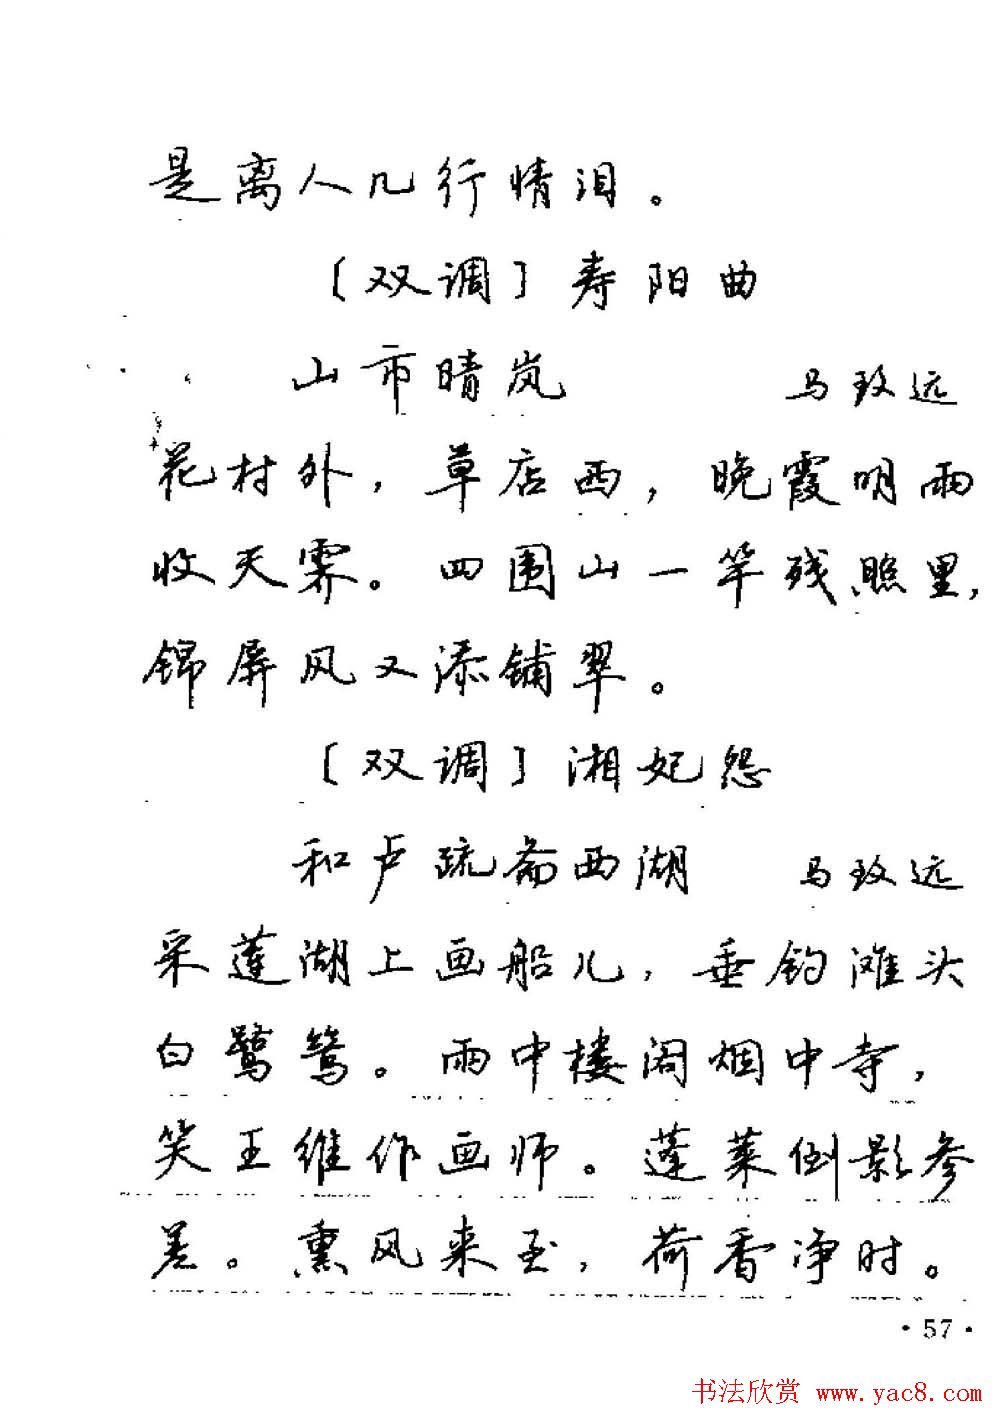 是离人几行情泪。
〔双调〕寿阳曲
山市晴岚 马致远
花村外，草店西，晚霞明雨
收天霁。四围山一竿残照里，
锦屏风又添铺翠。
〔双调〕湘妃怨
和卢疏斋西湖 马致远
采莲湖上画船儿，垂钓滩头
白鹭鸶。雨中楼阁烟中寺，
笑王维作画师。蓬莱倒影参
差。熏风来至，荷香净时。
·57·
书法欣赏 www.yac8.com